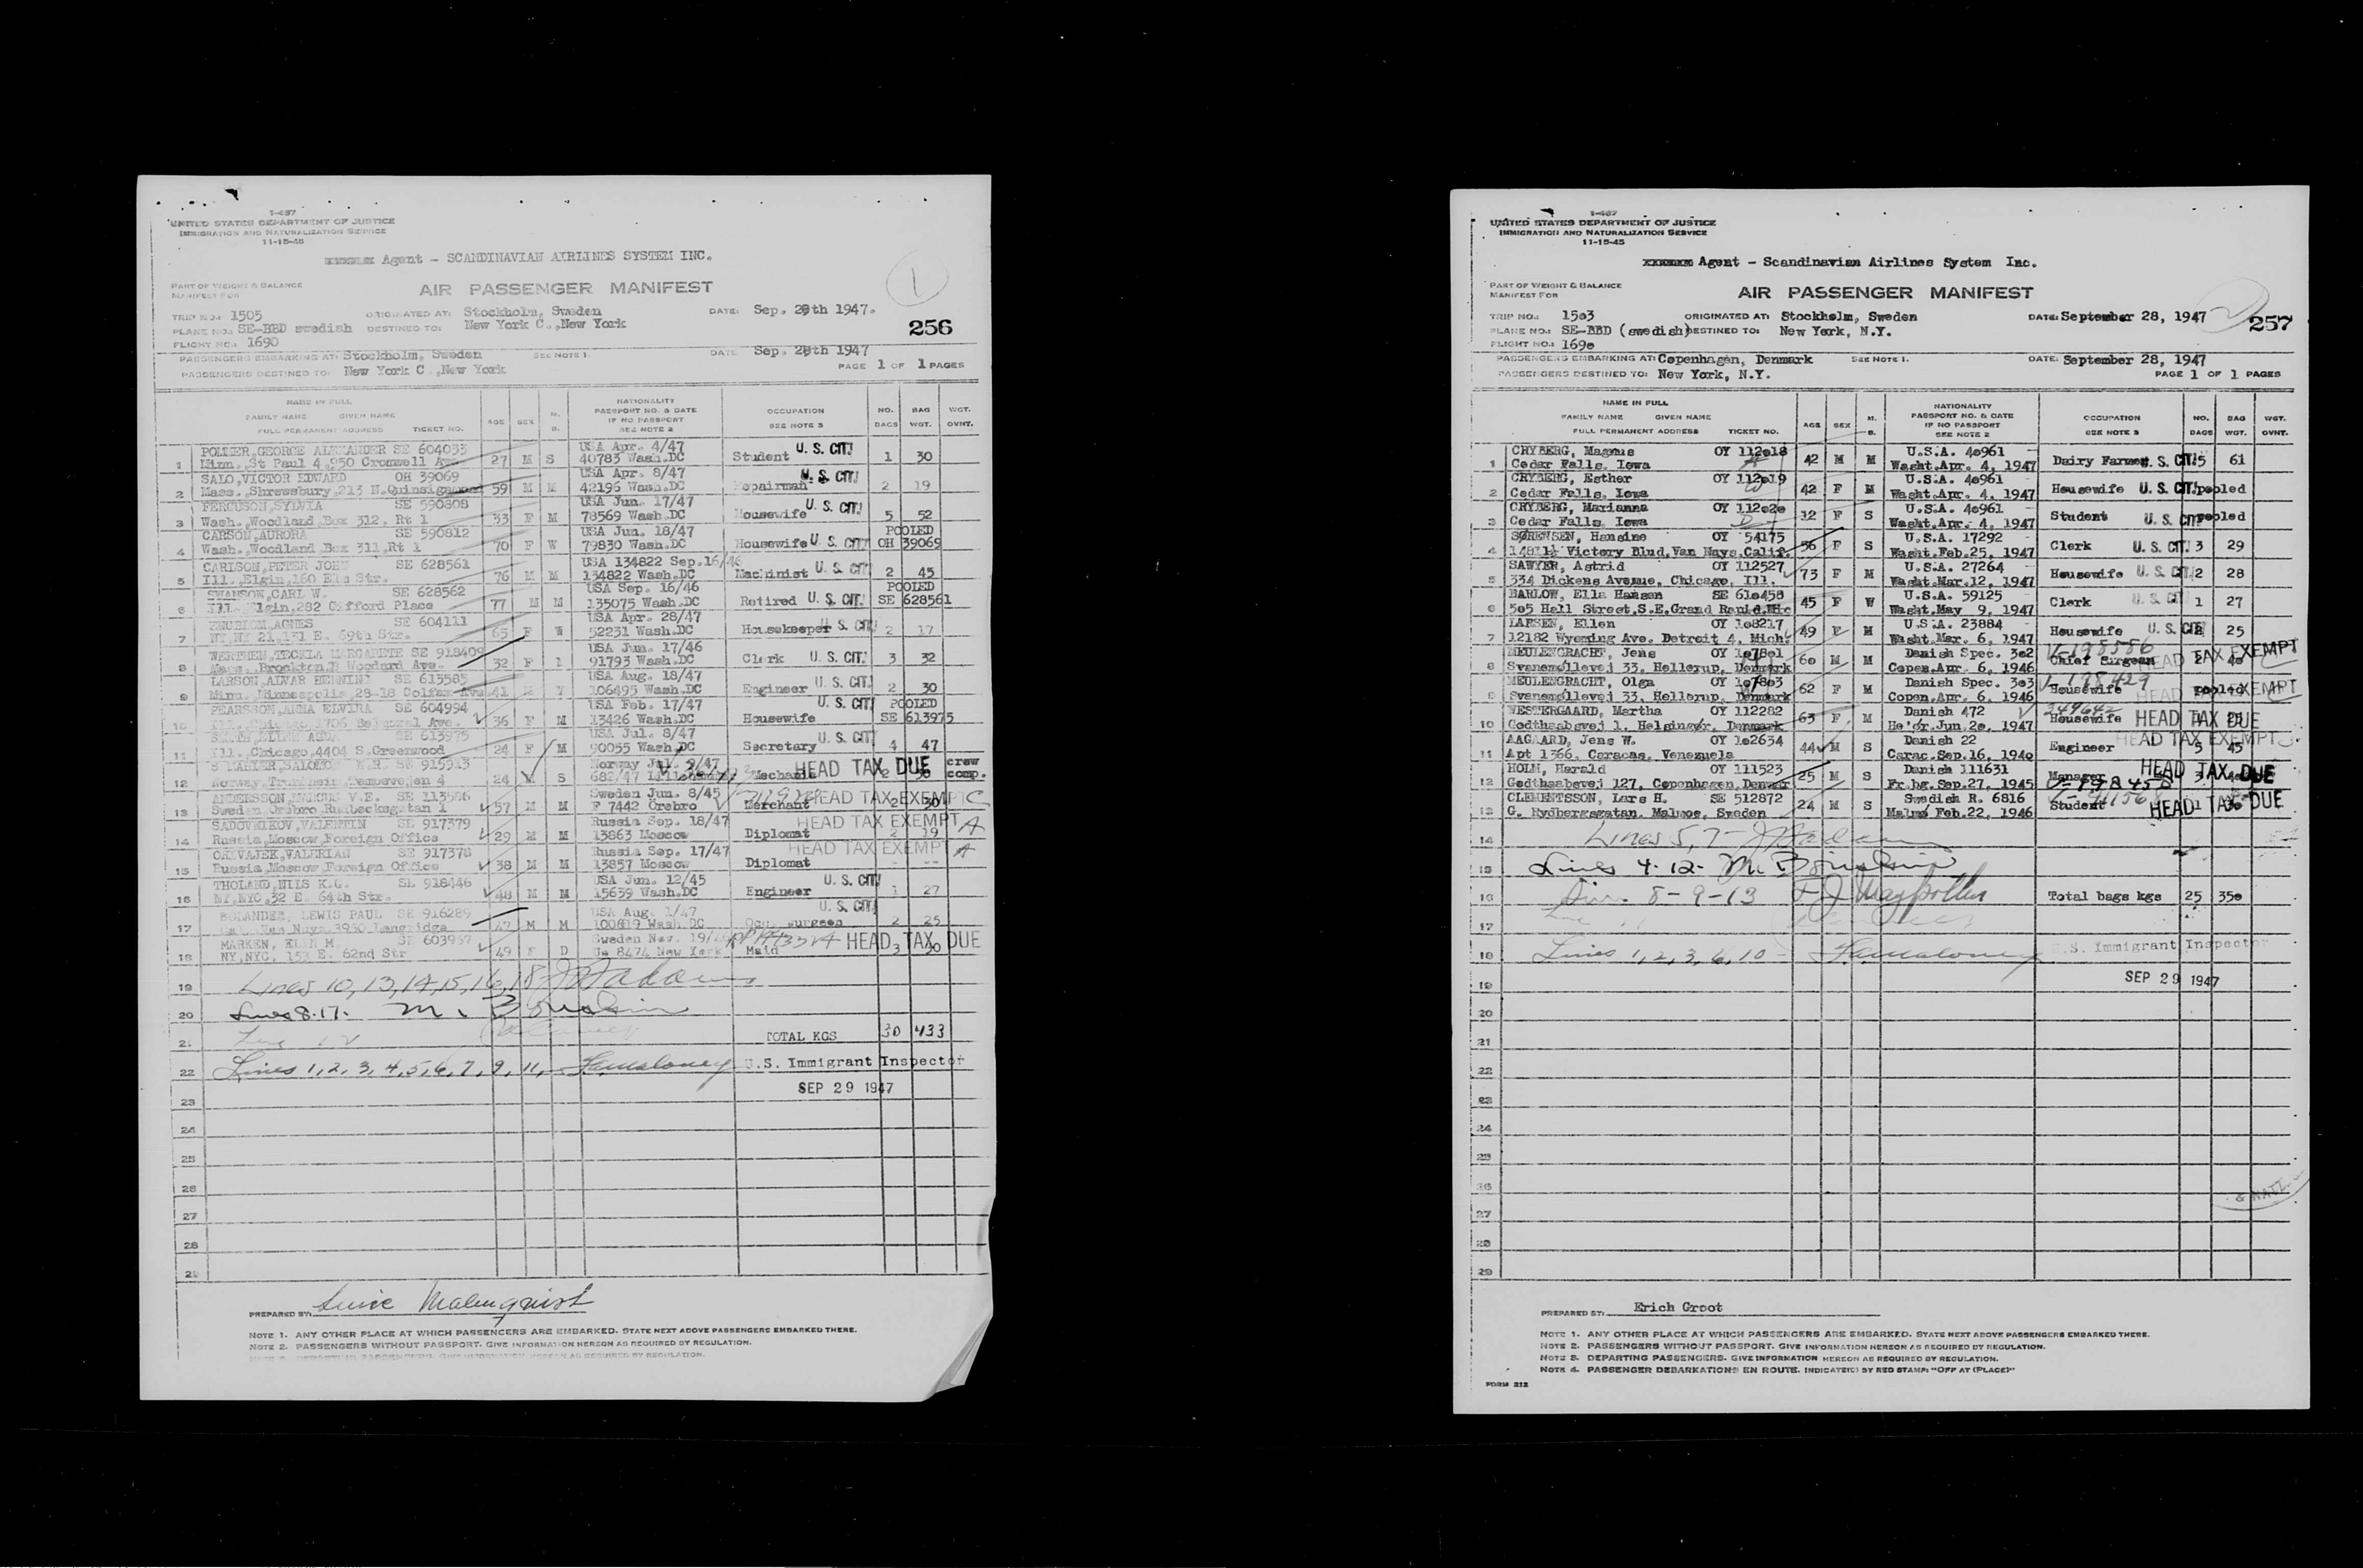 I-487
UNITED STATES DEPARTMENT OF JUSTICE
IMMIGRATION AND NATURALIZATION SERVICE
11-15-45
Agent - SCANDINAVIAN AIRLINES SYSTEM INC.
PART OF WEIGHT & BALANCE
MANIFEST FOR
AIR PASSENGER MANIFEST
1
TRIP NO.: 1505 ORIGINATED AT: Stockholm, Sweden DATE: Sep. 28th 1947.
PLANE NO.: SE-BBD swedish DESTINED TO: New York C.,New York
256
FLIGHT NO.: 1690
PASSENGERS EMBARKING AT: Stockholm, Sweden SEE NOTE 1. DATE Sep. 28th 1947
PASSENGERS DESTINED TO: New York C.,New York PAGE 1 OF 1 PAGES
NAME IN FULL
FAMILY NAME GIVEN NAME
FULL PERMANENT ADDRESS TICKET NO.
AGE SEX M. S.
NATIONALITY
PASSPORT NO. & DATE
IF NO PASSPORT
SEE NOTE 2
OCCUPATION
SEE NOTE 3
NO. BAGS
BAG WGT.
WGT. OVNT.
GEORGE ALEXANDER SE 604053 USA Apr. 4/47 U. S. CIT.
1 Minn., St Paul 4,950 Cromwell Ave 27 M S 40783 Wash.DC Student 1 30
SALO,VICTOR EDWARD OH 39069 USA Apr. 8/47 U. S. CIT.
2 Mass., Shrewsbury,213 N.Quinsigamond 59 M M 42196 Wash.DC Repairman 2 19
FERGUSON,SYLVIA SE 590808 USA Jun. 17/47 U. S. CIT.
3 Wash.,Woodland,Box 312, Rt 1 33 F M 78569 Wash.DC Housewife 5 52
CARSON,AURORA SE 590812 USA Jun. 18/47 POOLED
4 Wash.,Woodland,Box 311,Rt 1 70 F W 79830 Wash.DC Housewife U. S. CIT. OH 39069
CARLSON,PETER JOHN SE 628561 USA 134822 Sep.16/46
5 Ill.,Elgin,160 Elm Str. 76 M M 134822 Wash.DC Machinist U. S. CIT. 2 45
SWANSON,CARL W. SE 628562 USA Sep. 16/46 POOLED
6 Ill.,Elgin,282 Gifford Place 77 M M 135075 Wash.DC Retired U. S. CIT. SE 628561
AGNES SE 604111 USA Apr. 28/47
7 NY,NY 21,131 E. 69th Str. 65 F W 52231 Wash.DC Housekeeper U. S. CIT. 2 17
TECKLA MARGARETE SE 918409 USA Jun. 17/46
8 Mass., Brockton,B Woodard Ave. 32 F 91793 Wash.DC Clerk U. S. CIT. 3 32
LARSON,ALVAR HENNING SE 613585 USA Aug. 18/47
9 Minn., Minneapolis,28-18 Colfax Ave 41 106495 Wash.DC Engineer U. S. CIT. 2 30
PEARSSON,ANNA ELVIRA SE 604994 USA Feb. 17/47 U. S. CIT. POOLED
10 Ill.,Chicago,1706 Ave. 36 F M 13426 Wash.DC Housewife SE 613975
SE 613975 USA Jul. 8/47 U. S. CIT.
11 Ill.,Chicago,4404 S.Greenwood 24 F M 90055 Wash.DC Secretary 4 47
SALOMON SE 915913 Norway Jul. 9/47 HEAD TAX DUE crew
12 Norway,Trondheim 4 24 M S 682/47 Mechanic 2 comp.
ANDERSSON,MARCUS V.E. SE 113586 Sweden Jun. 8/45 HEAD TAX EXEMPT C
13 Sweden,Orebro,Rudbecksgatan 1 57 M M F 7442 Örebro Merchant 2 30
SADOVNIKOV,VALENTIN SE 917379 Russia Sep. 18/47 HEAD TAX EXEMPT A
14 Russia,Moscow,Foreign Office 29 M M 13863 Moscow Diplomat 2 19
VALERIAN SE 917378 Russia Sep. 17/47 HEAD TAX EXEMPT A
15 Russia,Moscow,Foreign Office 38 M M 13857 Moscow Diplomat - --
THOLAND,NILS K.G. SE 918446 USA Jun. 12/45 U. S. CIT.
16 NY,NYC,32 E. 64th Str. 48 M M 15639 Wash.DC Engineer 1 27
BOLANDER, LEWIS PAUL SE 916289 USA Aug. 1/47 U. S. CIT.
17 Van Nuys,3950 Longridge 47 M M 100819 Wash.DC surgeon 2 25
MARKEN, ELIN M. SE 603937 Sweden Nov. 19/ HEAD TAX DUE
18 NY,NYC, 153 E. 62nd Str 49 F D Us 8474 New York Maid 3 30
19 Lines 10,13,14,15,16,18
20 Lines 8-17.
21 Line 12 TOTAL KGS 30 433
22 Lines 1,2,3,4,5,6,7,9,11, U.S. Immigrant Inspector
SEP 29 1947
23
24
25
26
27
28
29
PREPARED BY: Malmquist
NOTE 1. ANY OTHER PLACE AT WHICH PASSENGERS ARE EMBARKED. STATE NEXT ABOVE PASSENGERS EMBARKED THERE.
NOTE 2. PASSENGERS WITHOUT PASSPORT. GIVE INFORMATION HEREON AS REQUIRED BY REGULATION.
NOTE 3. DEPARTING PASSENGERS. GIVE INFORMATION HEREON AS REQUIRED BY REGULATION.
I-487
UNITED STATES DEPARTMENT OF JUSTICE
IMMIGRATION AND NATURALIZATION SERVICE
11-15-45
Agent - Scandinavian Airlines System Inc.
PART OF WEIGHT & BALANCE
MANIFEST FOR
AIR PASSENGER MANIFEST
2
TRIP NO.: 15o3 ORIGINATED AT: Stockholm, Sweden DATE: September 28, 1947
257
PLANE NO.: SE-BBD (swedish) DESTINED TO: New York, N.Y.
FLIGHT NO.: 169o
PASSENGERS EMBARKING AT: Copenhagen, Denmark SEE NOTE 1. DATE: September 28, 1947
PASSENGERS DESTINED TO: New York, N.Y. PAGE 1 OF 1 PAGES
NAME IN FULL
FAMILY NAME GIVEN NAME
FULL PERMANENT ADDRESS TICKET NO.
AGE SEX M. S.
NATIONALITY
PASSPORT NO. & DATE
IF NO PASSPORT
SEE NOTE 2
OCCUPATION
SEE NOTE 3
NO. BAGS
BAG WGT.
WGT. OVNT.
CRYBERG, Magnus OY 112o18 U.S.A. 4o961
1 Cedar Falls, Iowa 42 M M Washt.Apr. 4, 1947 Dairy Farmer U. S. CIT. 5 61
CRYBERG, Esther OY 112o19 U.S.A. 4o961
2 Cedar Falls, Iowa 42 F M Washt.Apr. 4, 1947 Housewife U. S. CIT. pooled
CRYBERG, Marianna OY 112o2o U.S.A. 4o961
3 Cedar Falls, Iowa 12 F S Washt.Apr. 4, 1947 Student U. S. CIT. pooled
SØRENSEN, Hansine OY 54175 U.S.A. 17292
4 14811½ Victory Blvd,Van Nuys,Calif. 56 F S Washt.Feb.25, 1947 Clerk U. S. CIT. 3 29
SAWYER, Astrid OY 112527 U.S.A. 27264
5 334 Dickens Avenue, Chicago, Ill. 73 F M Washt.Mar.12, 1947 Housewife U. S. CIT. 2 28
BARLOW, Ella Hansen SE 61o458 U.S.A. 59125
6 5o5 Hall Street,S.E,Grand Rapid,Mic 45 F W Washt.May 9, 1947 Clerk U. S. CIT 1 27
LARSEN, Ellen OY 1o8217 U.S.A. 23884
7 12182 Wyoming Ave. Detroit 4, Mich. 49 F M Washt.Mar. 6, 1947 Housewife U. S. CIT. 25
MEULENGRACHT, Jens OY 1o78o1 Danish Spec. 3o2 V-198586 HEAD TAX EXEMPT
8 Svanemøllevej 33, Hellerup, Denmark 6o M M Copen.Apr. 6, 1946 Chief Surgeon 2 4o
MEULENGRACHT, Olga OY 1o78o3 Danish Spec. 3o3 V-198429 HEAD TAX EXEMPT
9 Svanemøllevej 33, Hellerup, Denmark 62 F M Copen.Apr. 6, 1946 Housewife pooled
WESTERGAARD, Martha OY 112282 Danish 472 349642
10 Godthaabsvej 1, Helsingør, Denmark 63 F M He'ør.Jun.2o, 1947 Housewife HEAD TAX DUE
AAGAARD, Jens W. OY 1o2634 Danish 22 HEAD TAX EXEMPT
11 Apt 1366, Caracas, Venezuela 44 M S Carac.Sep.16, 194o Engineer 3 45
HOLM, Harald OY 111523 Danish 111631 HEAD TAX DUE
12 Godthaabsvej 127, Copenhagen,Denmar 25 M S Fr.bg.Sep.27, 1945 Manager 3
CLEMENTSSON, Lars H. SE 512872 Swedish R. 6816
13 G. Rydbergsgatan, Malmoe, Sweden 24 M S Malmø Feb.22, 1946 Student HEAD TAX DUE
14 Lines 5,7-
15 Lines 4-12-
16 8-9-13 Total bags kgs 25 35o
17
18 Lines 1,2,3,6,10- U.S. Immigrant Inspector
19 SEP 29 1947
20
21
22
23
24
25
26
& NATZ.
27
28
29
PREPARED BY: Erich Groot
NOTE 1. ANY OTHER PLACE AT WHICH PASSENGERS ARE EMBARKED. STATE NEXT ABOVE PASSENGERS EMBARKED THERE.
NOTE 2. PASSENGERS WITHOUT PASSPORT. GIVE INFORMATION HEREON AS REQUIRED BY REGULATION.
NOTE 3. DEPARTING PASSENGERS. GIVE INFORMATION HEREON AS REQUIRED BY REGULATION.
NOTE 4. PASSENGER DEBARKATIONS EN ROUTE. INDICATE(C) BY RED STAMP: "OFF AT (PLACE)"
FORM 212